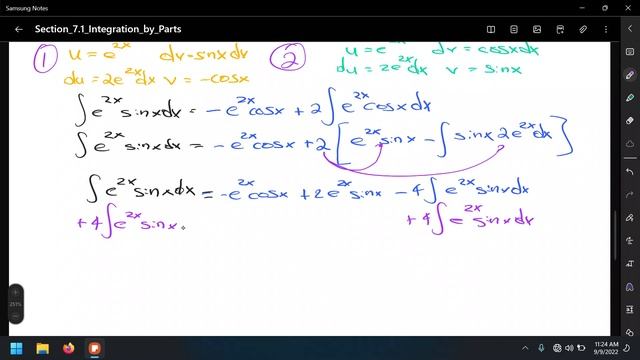 Samsung Notes
Section_7.1_Integration_by_Parts
① u = e^{2x} dv = sinx dx ② u = e^{2x} dv = cosx dx
du = 2e^{2x} dx v = -cosx du = 2e^{2x} dx v = sinx
∫ e^{2x} sinx dx = -e^{2x} cosx + 2 ∫ e^{2x} cosx dx
∫ e^{2x} sinx dx = -e^{2x} cosx + 2 [ e^{2x} sinx - ∫ sinx 2e^{2x} dx ]
∫ e^{2x} sinx dx = -e^{2x} cosx + 2e^{2x} sinx - 4 ∫ e^{2x} sinx dx
+4 ∫ e^{2x} sinx +4 ∫ e^{2x} sinx dx
251%
11:24 AM
9/9/2022